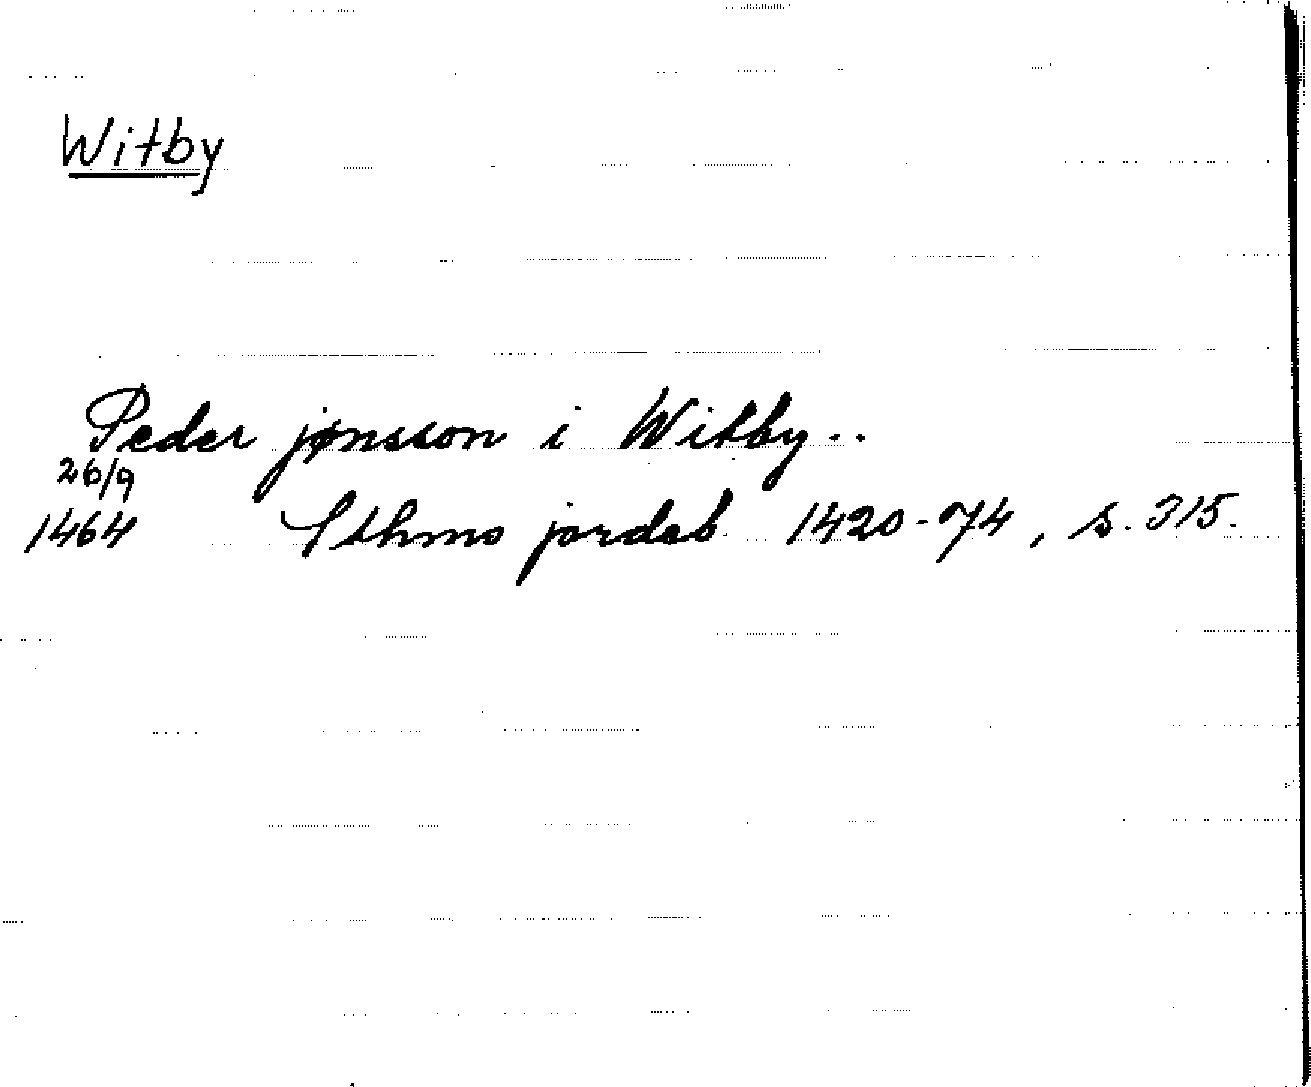 Witby
Peder jønsson i Witby..
26/9
1464 Sthms jordeb 1420-74, s. 315.